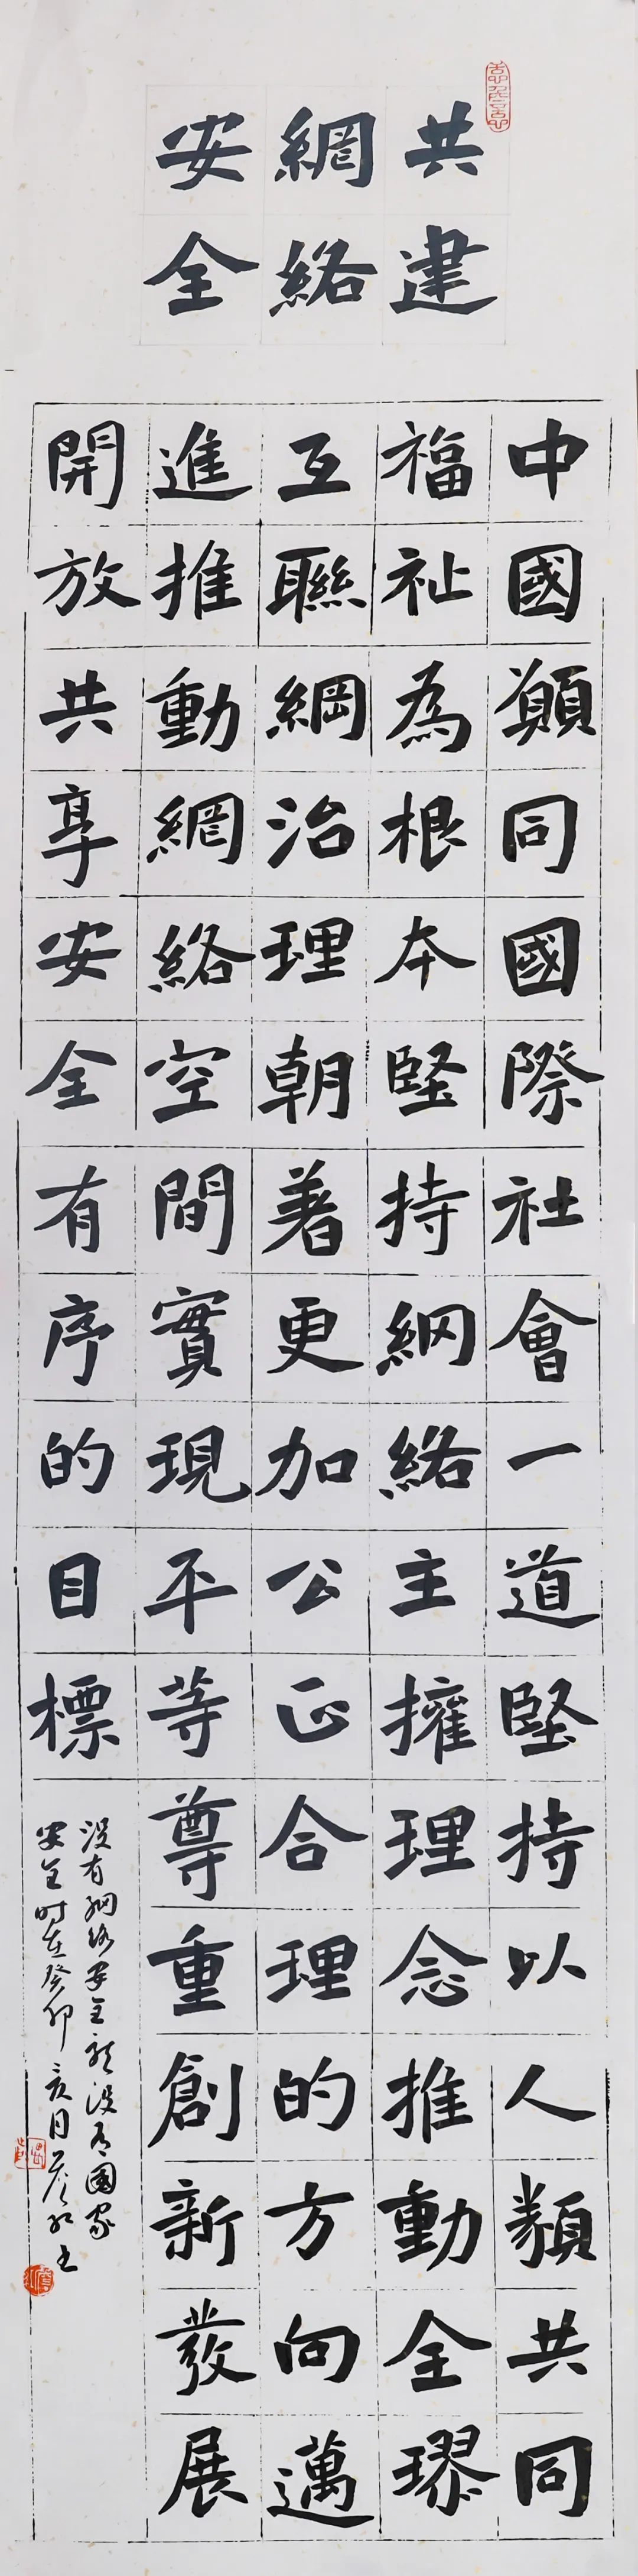 共建
網絡
安全
中國願同國際社會一道堅持以人類共同
福祉為根本堅持網絡主權理念推動全球
互聯網治理朝著更加公正合理的方向邁
進推動網絡空間實現平等尊重創新發展
開放共享安全有序的目標
没有網絡安全就没有國家
安全時在癸卯亥月